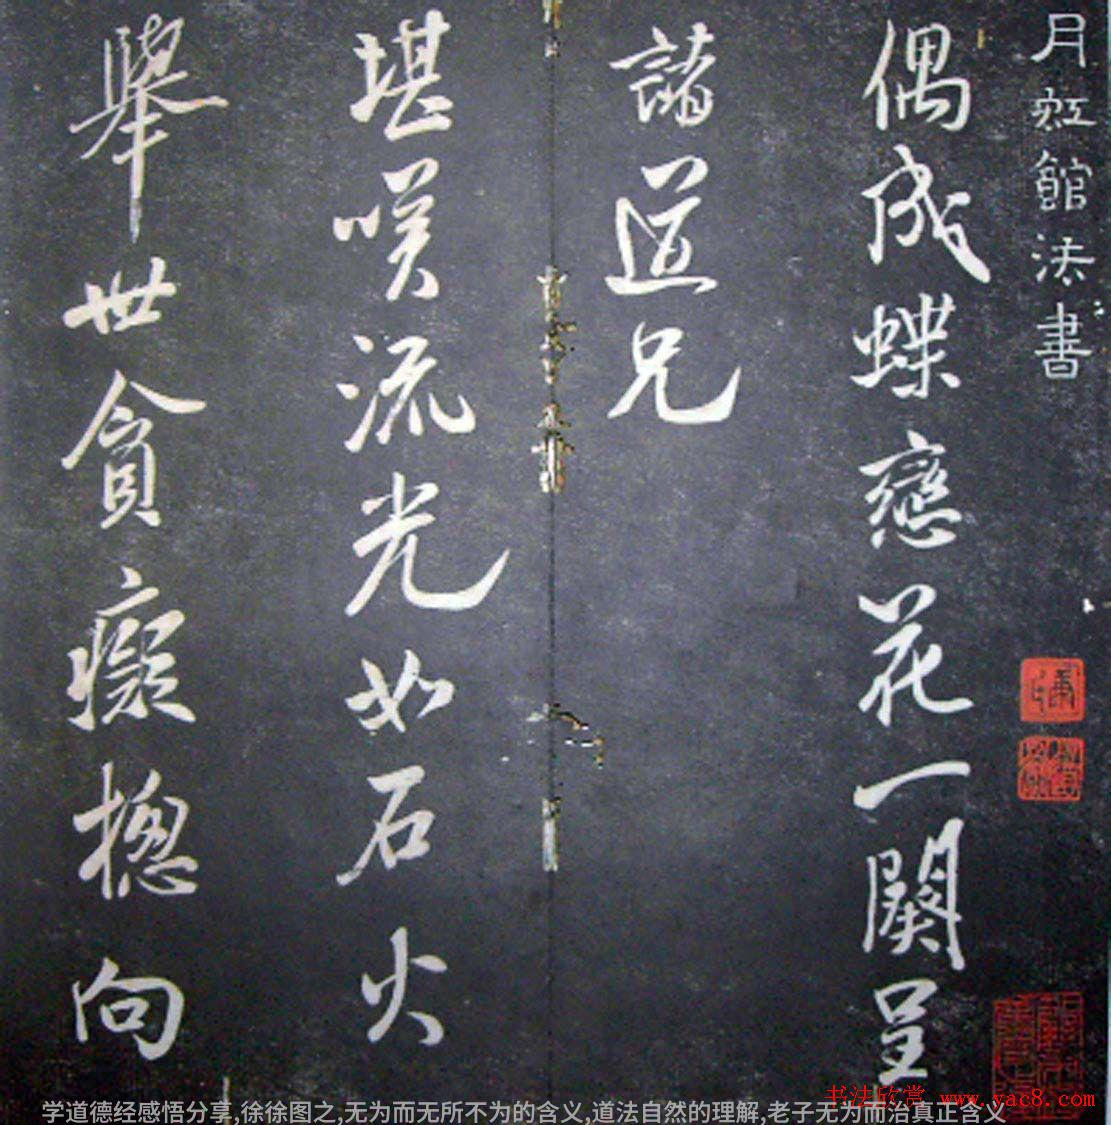 月虹館法書
偶成蝶戀花一闋呈
諸道兄
堪嘆流光如石火
舉世貪癡摠向
书法欣赏 www.yac8.com
学道德经感悟分享,徐徐图之,无为而无所不为的含义,道法自然的理解,老子无为而治真正含义